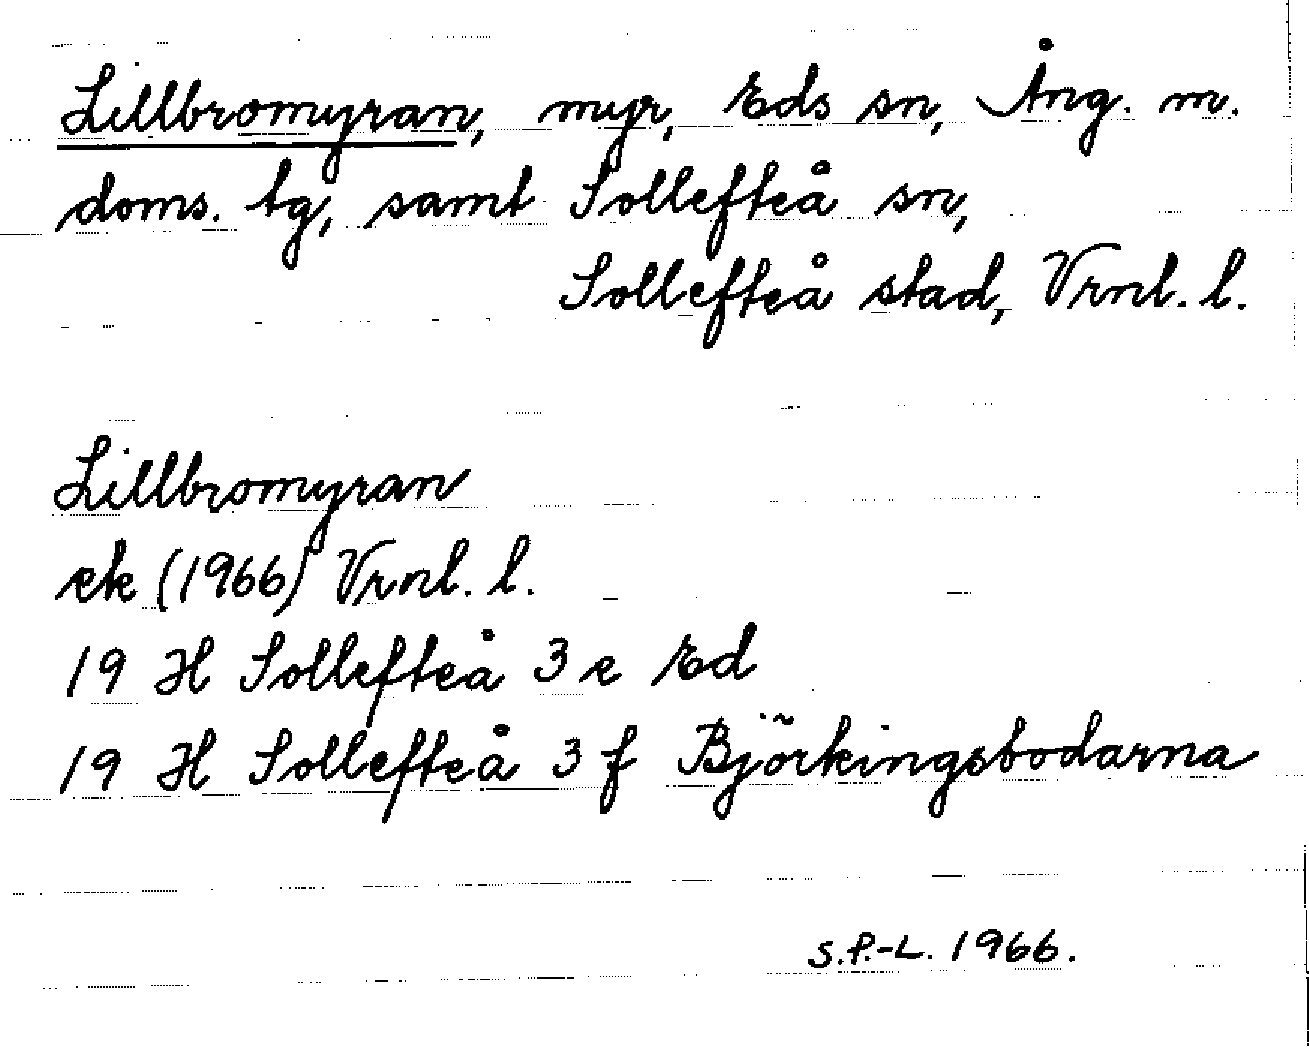 Lillbromyran, myr, Eds sn, Ång. m.
doms. tg, samt Sollefteå sn,
Sollefteå stad, Vrnl. l.
Lillbromyran
ek (1966) Vrnl. l.
19 H Sollefteå 3 e Ed
19 H Sollefteå 3 f Björkingsbodarna
S.P.-L. 1966.